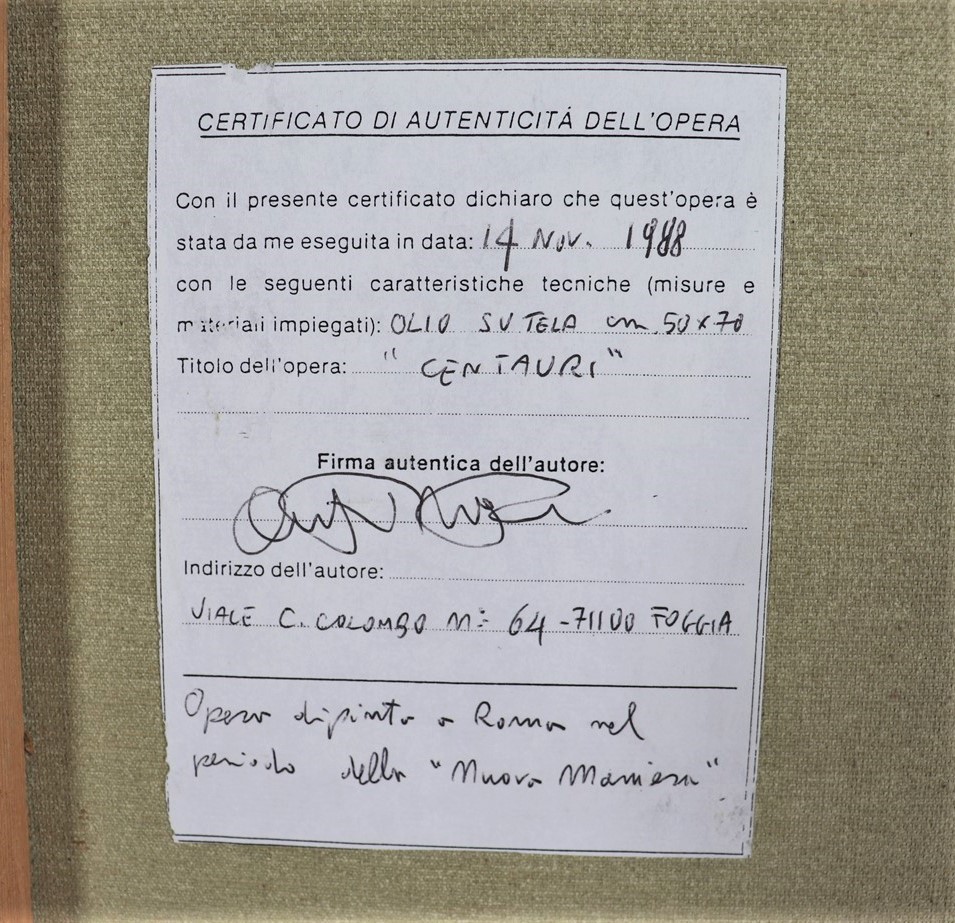 CERTIFICATO DI AUTENTICITÁ DELL'OPERA
Con il presente certificato dichiaro che quest'opera è
stata da me eseguita in data: 14 Nov. 1988
con le seguenti caratteristiche tecniche (misure e
materiali impiegati): OLIO SU TELA cm. 50 x 70
Titolo dell'opera: "CENTAURI"
Firma autentica dell'autore:
Indirizzo dell'autore:
VIALE C. COLOMBO N= 64 - 71100 FOGGIA
Opera dipinta a Roma nel
periodo della "Nuova Maniera"